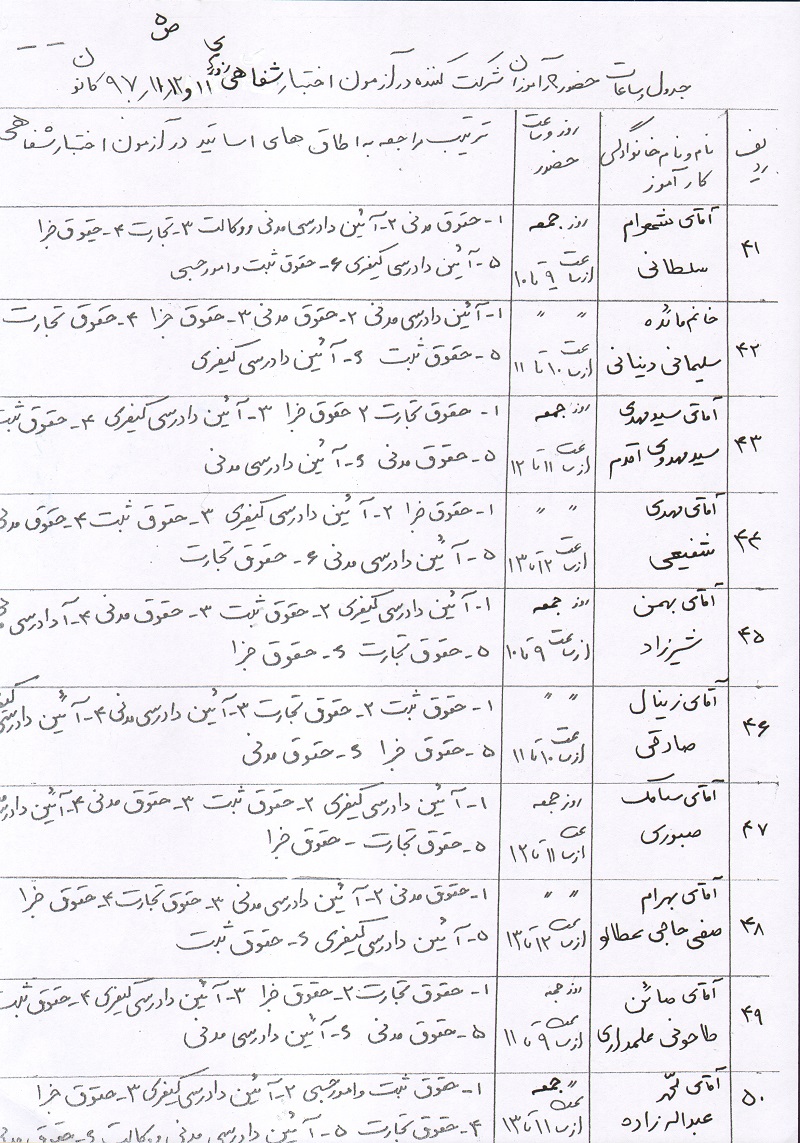 ص ۵
جدول ساعات حضور کارآموزان شرکت کننده در آزمون اختبار شفاهی ۱۱ و ۱۲ر۱۱ر۹۷ کانون
ردیف نام و نام خانوادگی کارآموز روز و ساعت حضور ترتیب مراجعه به اطاق های اساتید در آزمون اختبار شفاهی
۴۱ آقای شهرام روز جمعه ۱- حقوق مدنی ۲- آئین دادرسی مدنی و وکالت ۳- تجارت ۴- حقوق جزا
سلطانی از ساعت ۹ تا ۱۰ ۵- آئین دادرسی کیفری ۶- حقوق ثبت و امور حسبی
۴۲ خانم مائده " " ۱- آئین دادرسی مدنی ۲- حقوق مدنی ۳- حقوق جزا ۴- حقوق تجارت
سلیمانی دینانی از ساعت ۱۰ تا ۱۱ ۵- حقوق ثبت ۶- آئین دادرسی کیفری
۴۳ آقای سید مهدی روز جمعه ۱- حقوق تجارت ۲ حقوق جزا ۳- آئین دادرسی کیفری ۴- حقوق ثبت
سید مهدوی اقدم از ساعت ۱۱ تا ۱۲ ۵- حقوق مدنی ۶- آئین دادرسی مدنی
۴۴ آقای مهدی " " ۱- حقوق جزا ۲- آئین دادرسی کیفری ۳- حقوق ثبت ۴- حقوق مدنی
شفیعی از ساعت ۱۲ تا ۱۳ ۵- آئین دادرسی مدنی ۶- حقوق تجارت
۴۵ آقای بهمن روز جمعه ۱- آئین دادرسی کیفری ۲- حقوق ثبت ۳- حقوق مدنی ۴- آ دادرسی
شیرزاد از ساعت ۹ تا ۱۰ ۵- حقوق تجارت ۶- حقوق جزا
۴۶ آقای زینال " " ۱- حقوق ثبت ۲- حقوق تجارت ۳- آئین دادرسی مدنی ۴- آئین دادرسی کیفری
صادقی از ساعت ۱۰ تا ۱۱ ۵- حقوق جزا ۶- حقوق مدنی
۴۷ آقای سیامک روز جمعه ۱- آئین دادرسی کیفری ۲- حقوق ثبت ۳- حقوق مدنی ۴- آئین
صبوری از ساعت ۱۱ تا ۱۲ ۵- حقوق تجارت - حقوق جزا
۴۸ آقای بهرام " " ۱- حقوق مدنی ۲- آئین دادرسی مدنی ۳- حقوق تجارت ۴- حقوق جزا
صفی حاجی از ساعت ۱۲ تا ۱۳ ۵- آئین دادرسی کیفری ۶- حقوق ثبت
۴۹ آقای صائن روز جمعه ۱- حقوق تجارت ۲- حقوق جزا ۳- آئین دادرسی کیفری ۴- حقوق ثبت
طاحونی علمداری از ساعت ۹ تا ۱۱ ۵- حقوق مدنی ۶- آئین دادرسی مدنی
۵۰ آقای محمد " جمعه ۱- حقوق ثبت و امور حسبی ۲- آئین دادرسی کیفری ۳- حقوق جزا
عبداله زاده از ساعت ۱۱ تا ۱۳ ۴- حقوق تجارت ۵- آئین دادرسی مدنی و وکالت ۶- حقوق مدنی